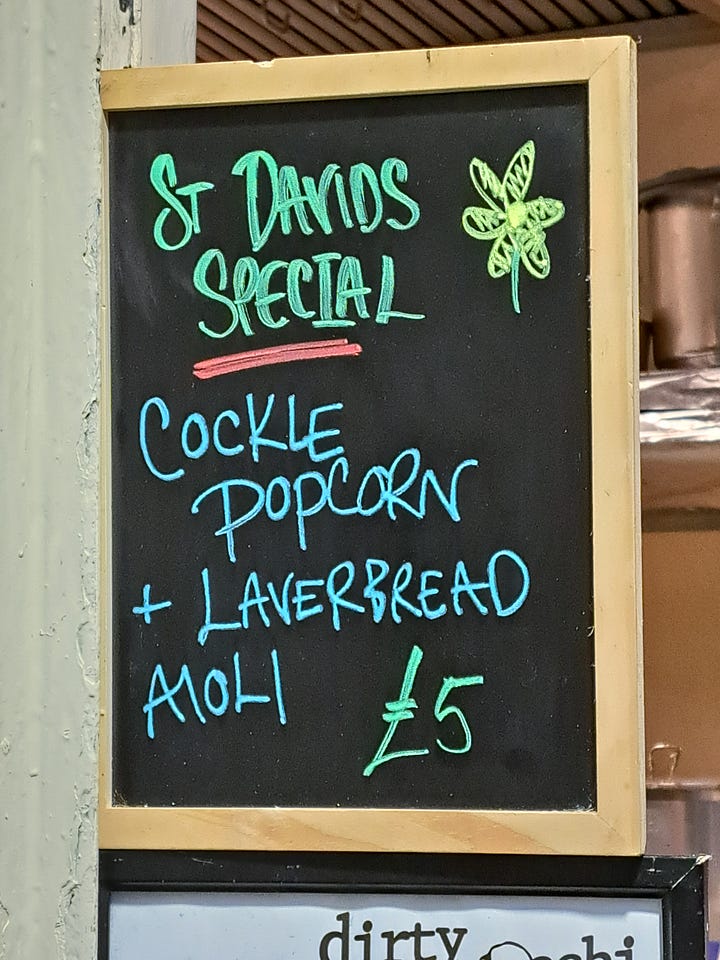 ST DAVIDS
SPECIAL
COCKLE
POPCORN
+ LAVERBREAD
AIOLI
£5
dirty